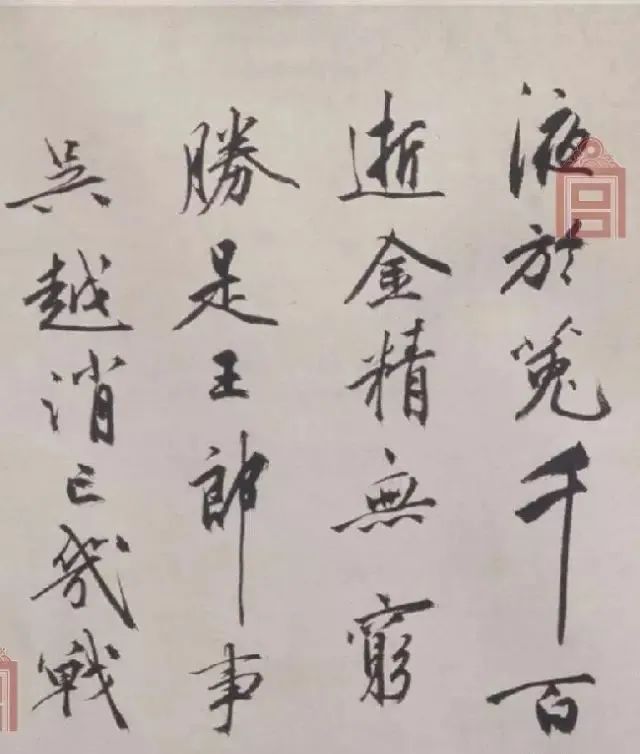 液於菟千百
逝金精無窮
勝是王郎事
吳越消已幾戰